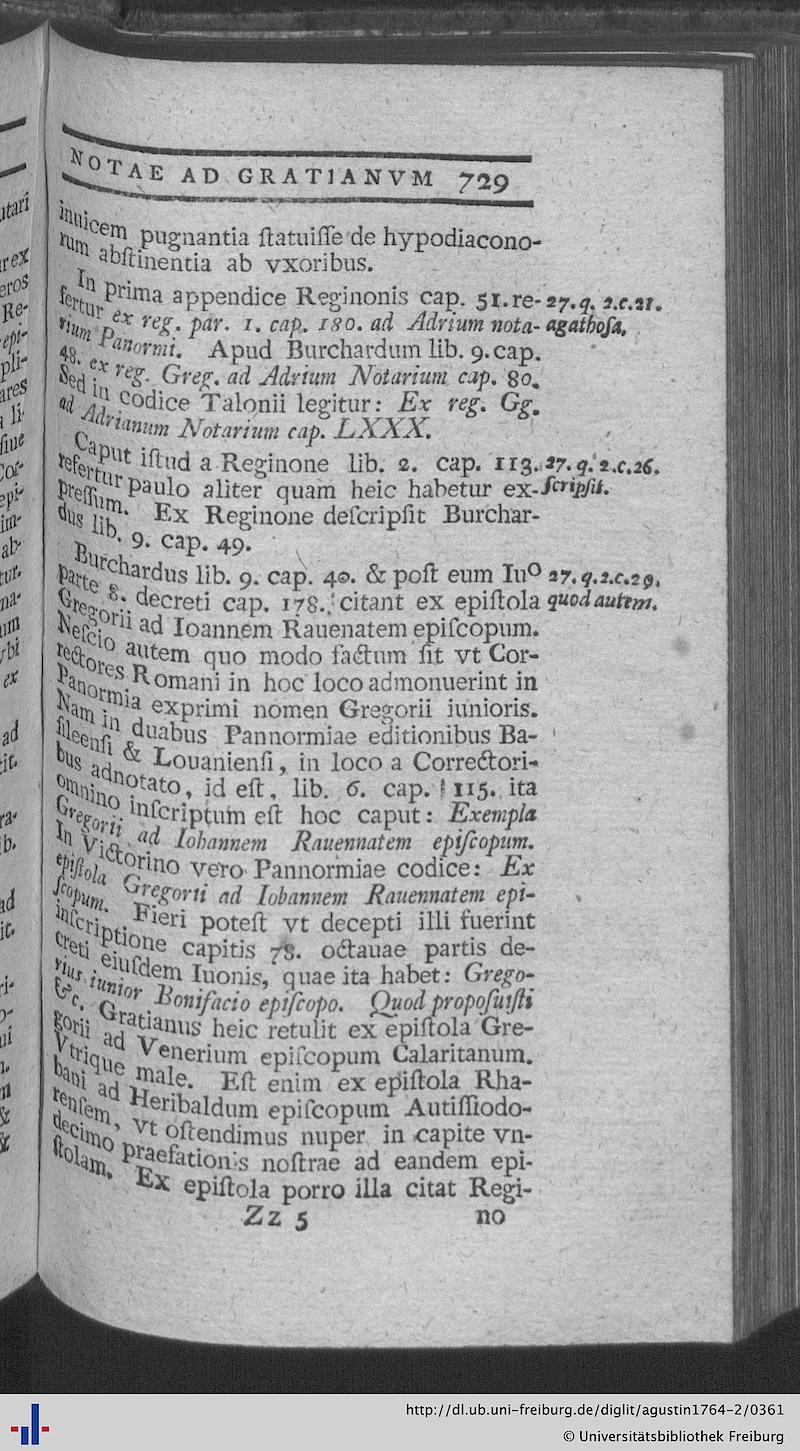 NOTAE AD GRATIANVM 729
inuicem pugnantia ſtatuiſſe de hypodiacono-
rum abſtinentia ab vxoribus.
In prima appendice Reginonis cap. 51. re- 27. q. 2. c. 21.
fertur ex reg. par. 1. cap. 180. ad Adrium nota- agathoſa.
rium Panormi. Apud Burchardum lib. 9. cap.
48. ex reg. Greg. ad Adrium Notarium cap. 80.
Sed in codice Talonii legitur: Ex reg. Gg.
ad Adrianum Notarium cap. LXXX.
Caput iſtud a Reginone lib. 2. cap. 113. 27. q. 2. c. 26.
refertur paulo aliter quam heic habetur ex- ſcripſit.
preſſum. Ex Reginone deſcripſit Burchar-
dus lib. 9. cap. 49.
Burchardus lib. 9. cap. 40. & poſt eum Iuo 27. q. 2. c. 29.
parte 8. decreti cap. 178. citant ex epiſtola quod autem.
Gregorii ad Ioannem Rauenatem epiſcopum.
Neſcio autem quo modo factum ſit vt Cor-
rectores Romani in hoc loco admonuerint in
Panormia exprimi nomen Gregorii iunioris.
Nam in duabus Pannormiae editionibus Ba-
ſileenſi & Louanienſi, in loco a Correctori-
bus adnotato, id eſt, lib. 6. cap. 115. ita
omnino inſcriptum eſt hoc caput: Exempla
Gregorii ad Iohannem Rauennatem epiſcopum.
In Victorino vero Pannormiae codice: Ex
epiſtola Gregorii ad Iohannem Rauennatem epi-
ſcopum. Fieri poteſt vt decepti illi fuerint
inſcriptione capitis 78. octauae partis de-
creti eiuſdem Iuonis, quae ita habet: Grego-
rius iunior Bonifacio epiſcopo. Quod propoſuiſti
&c. Gratianus heic retulit ex epiſtola Gre-
gorii ad Venerium epiſcopum Calaritanum.
Vtrique male. Eſt enim ex epiſtola Rha-
bani ad Heribaldum epiſcopum Autiſſiodo-
renſem, vt oſtendimus nuper in capite vn-
decimo praefationis noſtrae ad eandem epi-
ſtolam. Ex epiſtola porro illa citat Regi-
Zz 5 no
http://dl.ub.uni-freiburg.de/diglit/agustin1764-2/0361
© Universitätsbibliothek Freiburg